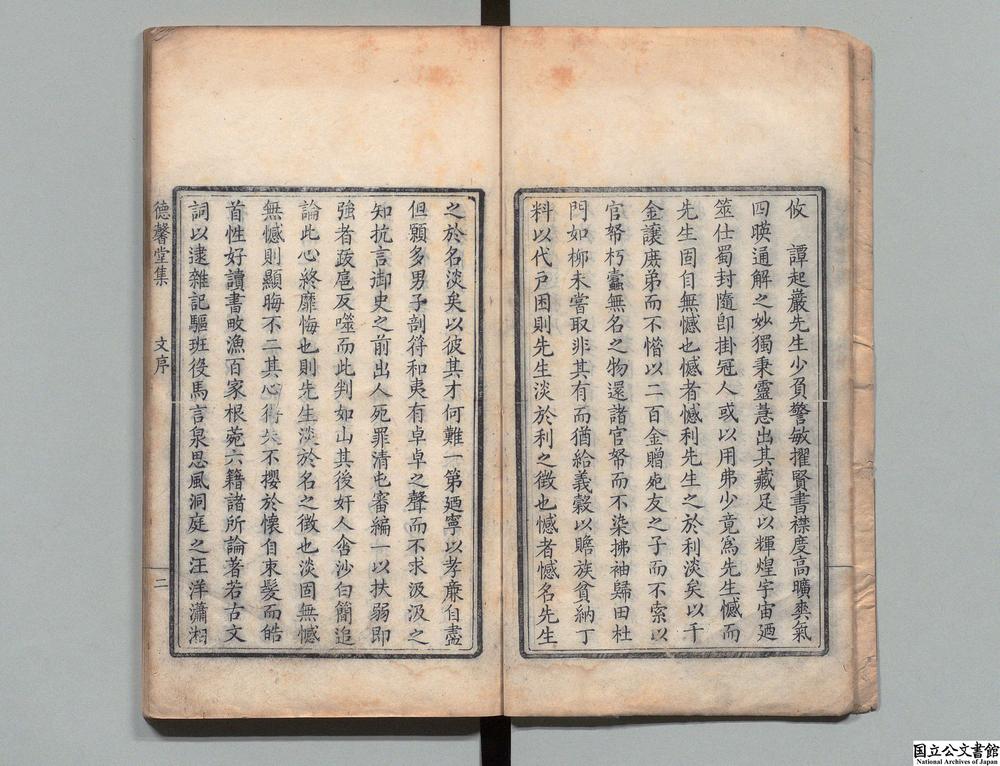 攸　譚起巖先生少負警敏擢賢書襟度高曠爽氣
四暎通解之妙獨秉靈慧出其藏足以輝煌宇宙廼
筮仕蜀封隨卽掛冠人或以用弗少竟爲先生憾而
先生固自無憾也憾者憾利先生之於利淡矣以千
金讓庶弟而不惜以二百金贈死友之子而不索以
官帑朽蠧無名之物還諸官帑而不染拂袖歸田杜
門如栁未嘗取非其有而猶給義穀以贍族貧納丁
料以代戸困則先生淡於利之徴也憾者憾名先生
之於名淡矣以彼其才何難一第廼寧以孝廉自盡
但願多男子剖符和夷有卓卓之聲而不求汲汲之
知抗言御史之前出人死罪清屯審編一以扶弱即
強者跋扈反噬而此判如山其後奸人含沙白簡追
論此心終靡悔也則先生淡於名之徴也淡固無憾
無憾則顯晦不二其心得失不攖於懷自束髮而皓
首性好讀書畋漁百家根菀六籍諸所論著若古文
詞以逮雜記驅班役馬言泉思風洞庭之汪洋瀟湘
德馨堂集　文序　二
国立公文書館
National Archives of Japan